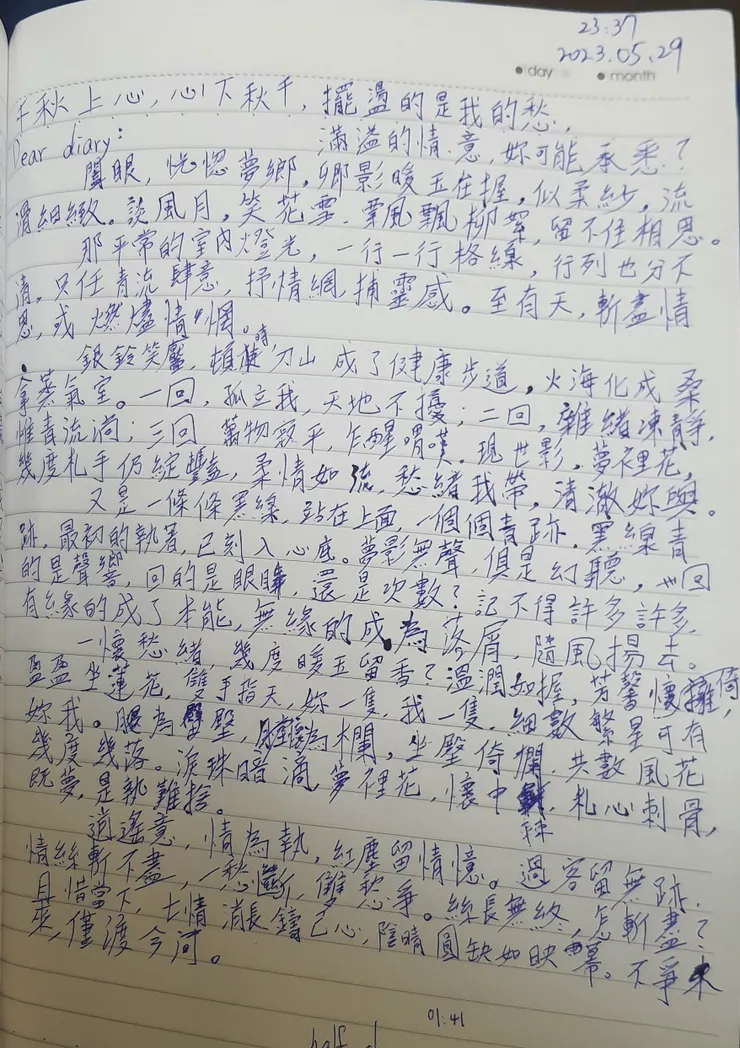 23:37
2023.05.29
day month
千秋上心,心下秋千,擺盪的是我的愁,
Dear diary: 滿溢的情意,妳可能承悉?
闔眼,恍惚夢鄉。鄉影暖玉在握,似柔紗,流
滑細緻。談風月,笑花雪,乘風飄柳絮,留不住相思。
那平常的室內燈光,一行一行格線,行列也分不
清,只任青流肆意,抒情網,捕靈感。至有天,斬盡情
思,或燃燼情惘。
銀鈴笑靨,頓時刀山成了健康步道,火海化成桑
拿蒸氣室。一回,孤立我,天地不擾;二回,雜緒凍靜,
惟青流淌;三回,萬物寂乎,乍醒喟嘆。現世影,夢裡花,
幾度札手仍綻豔,柔情如流,愁緒我帶,清澈妳與。
又是一條條黑線,站在上面,一個個青跡,黑線青
跡,最初的執著,已刻入心底。夢影無聲,俱是幻聽,一回
的是聲響,回的是眼眸,還是次數?記不得許多許多,
有緣的成了本能,無緣的成為落屑,隨風揚去。
一懷愁緒,幾度暖玉留香?溫潤如握,芳馨懷擁倚,
盈盈坐蓮花,雙手指天,妳一隻,我一隻,細數繁星可有
妳我。腿為墊,為欄,坐墊倚欄,共數風花
幾度幾落。淚珠暗滴,夢裡花,懷中棘,札心刺骨,
既夢,是執難捨。
逍遙意,情為執,紅塵留情憶。過客留無跡,
情絲斬不盡,一愁斷,雙愁爭。絲長無終,怎斬盡?
且惜當下,七情消長鑄己心,陰晴圓缺如映幕。不爭未
來,僅渡今河。
01:41
half